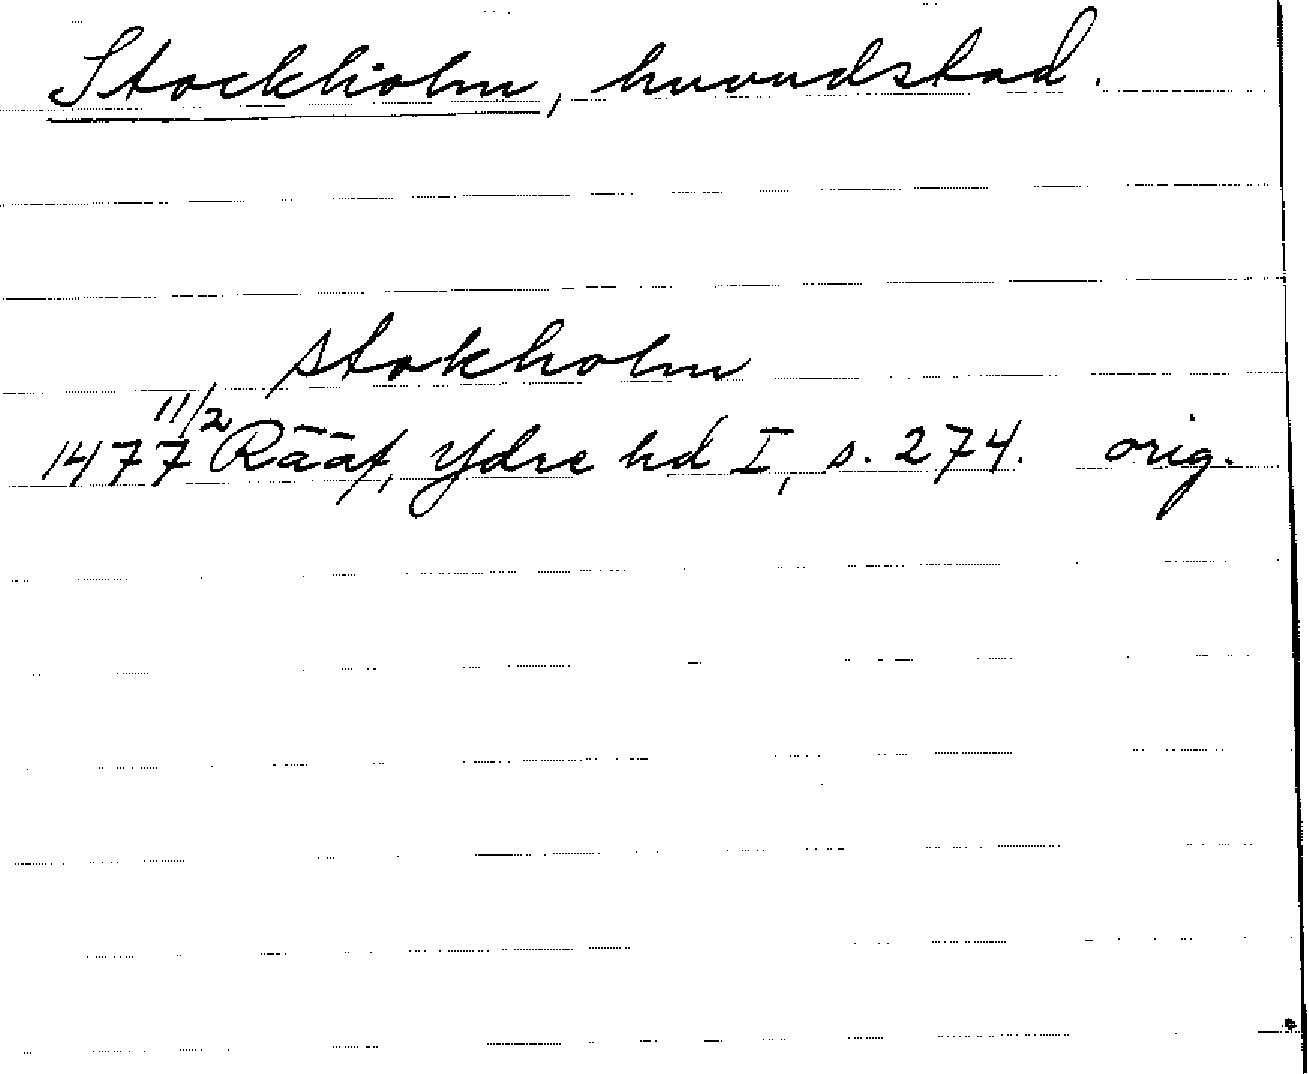 Stockholm, huvudstad.
stokholm
1477 11/2 Rääf, Ydre hd I, s. 274. orig.